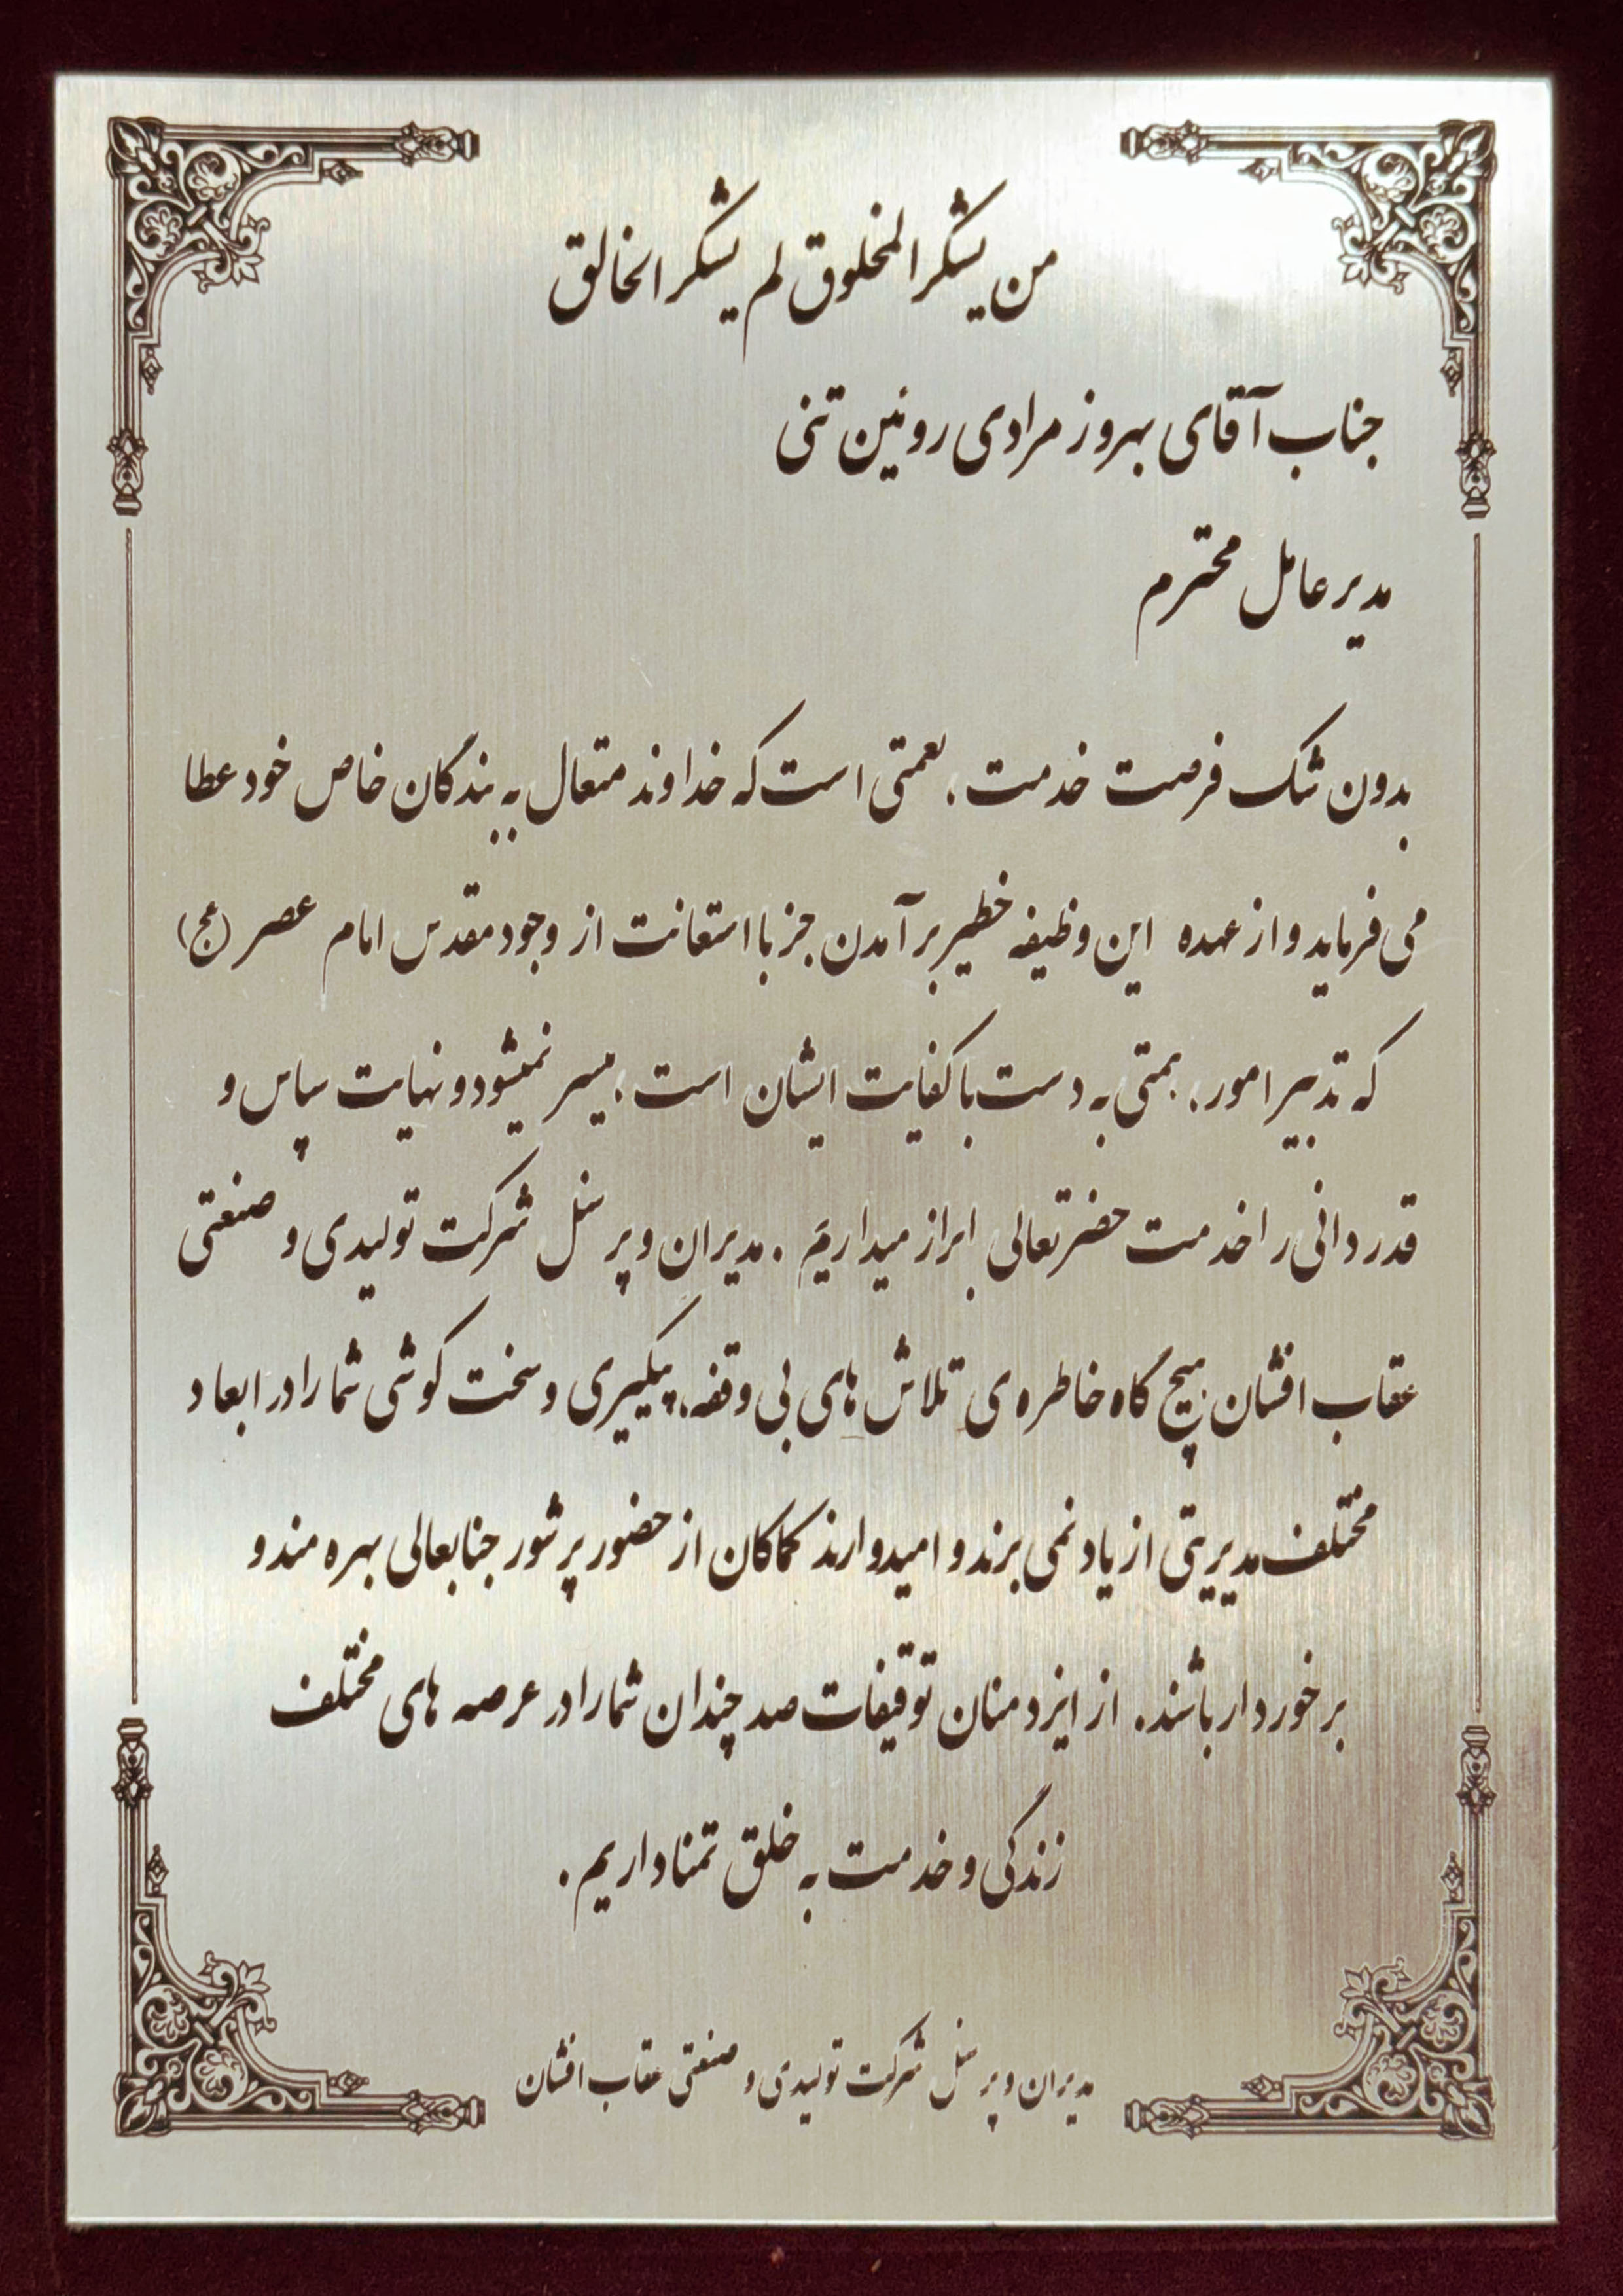 من یشکر المخلوق لم یشکر الخالق
جناب آقای بهروز مرادی روئین تنی
مدیر عامل محترم
بدون شک فرصت خدمت، نعمتی است که خداوند متعال به بندگان خاص خود عطا
می فرماید و از عهده این وظیفه خطیر بر آمدن جز با استعانت از وجود مقدس امام عصر (عج)
که تدبیر امور، همتی به دست با کفایت ایشان است، میسر نمیشود و نهایت سپاس و
قدردانی را خدمت حضرتعالی ابراز میداریم . مدیران و پرسنل شرکت تولیدی و صنعتی
عقاب افشان هیچ گاه خاطره ی تلاش های بی وقفه، پیگیری و سخت کوشی شما را در ابعاد
مختلف مدیریتی از یاد نمی برند و امیدوارند کماکان از حضور پر شور جنابعالی بهره مند و
برخوردار باشند. از ایزد منان توفیقات صد چندان شما را در عرصه های مختلف
زندگی و خدمت به خلق تمنا داریم .
مدیران و پرسنل شرکت تولیدی و صنعتی عقاب افشان